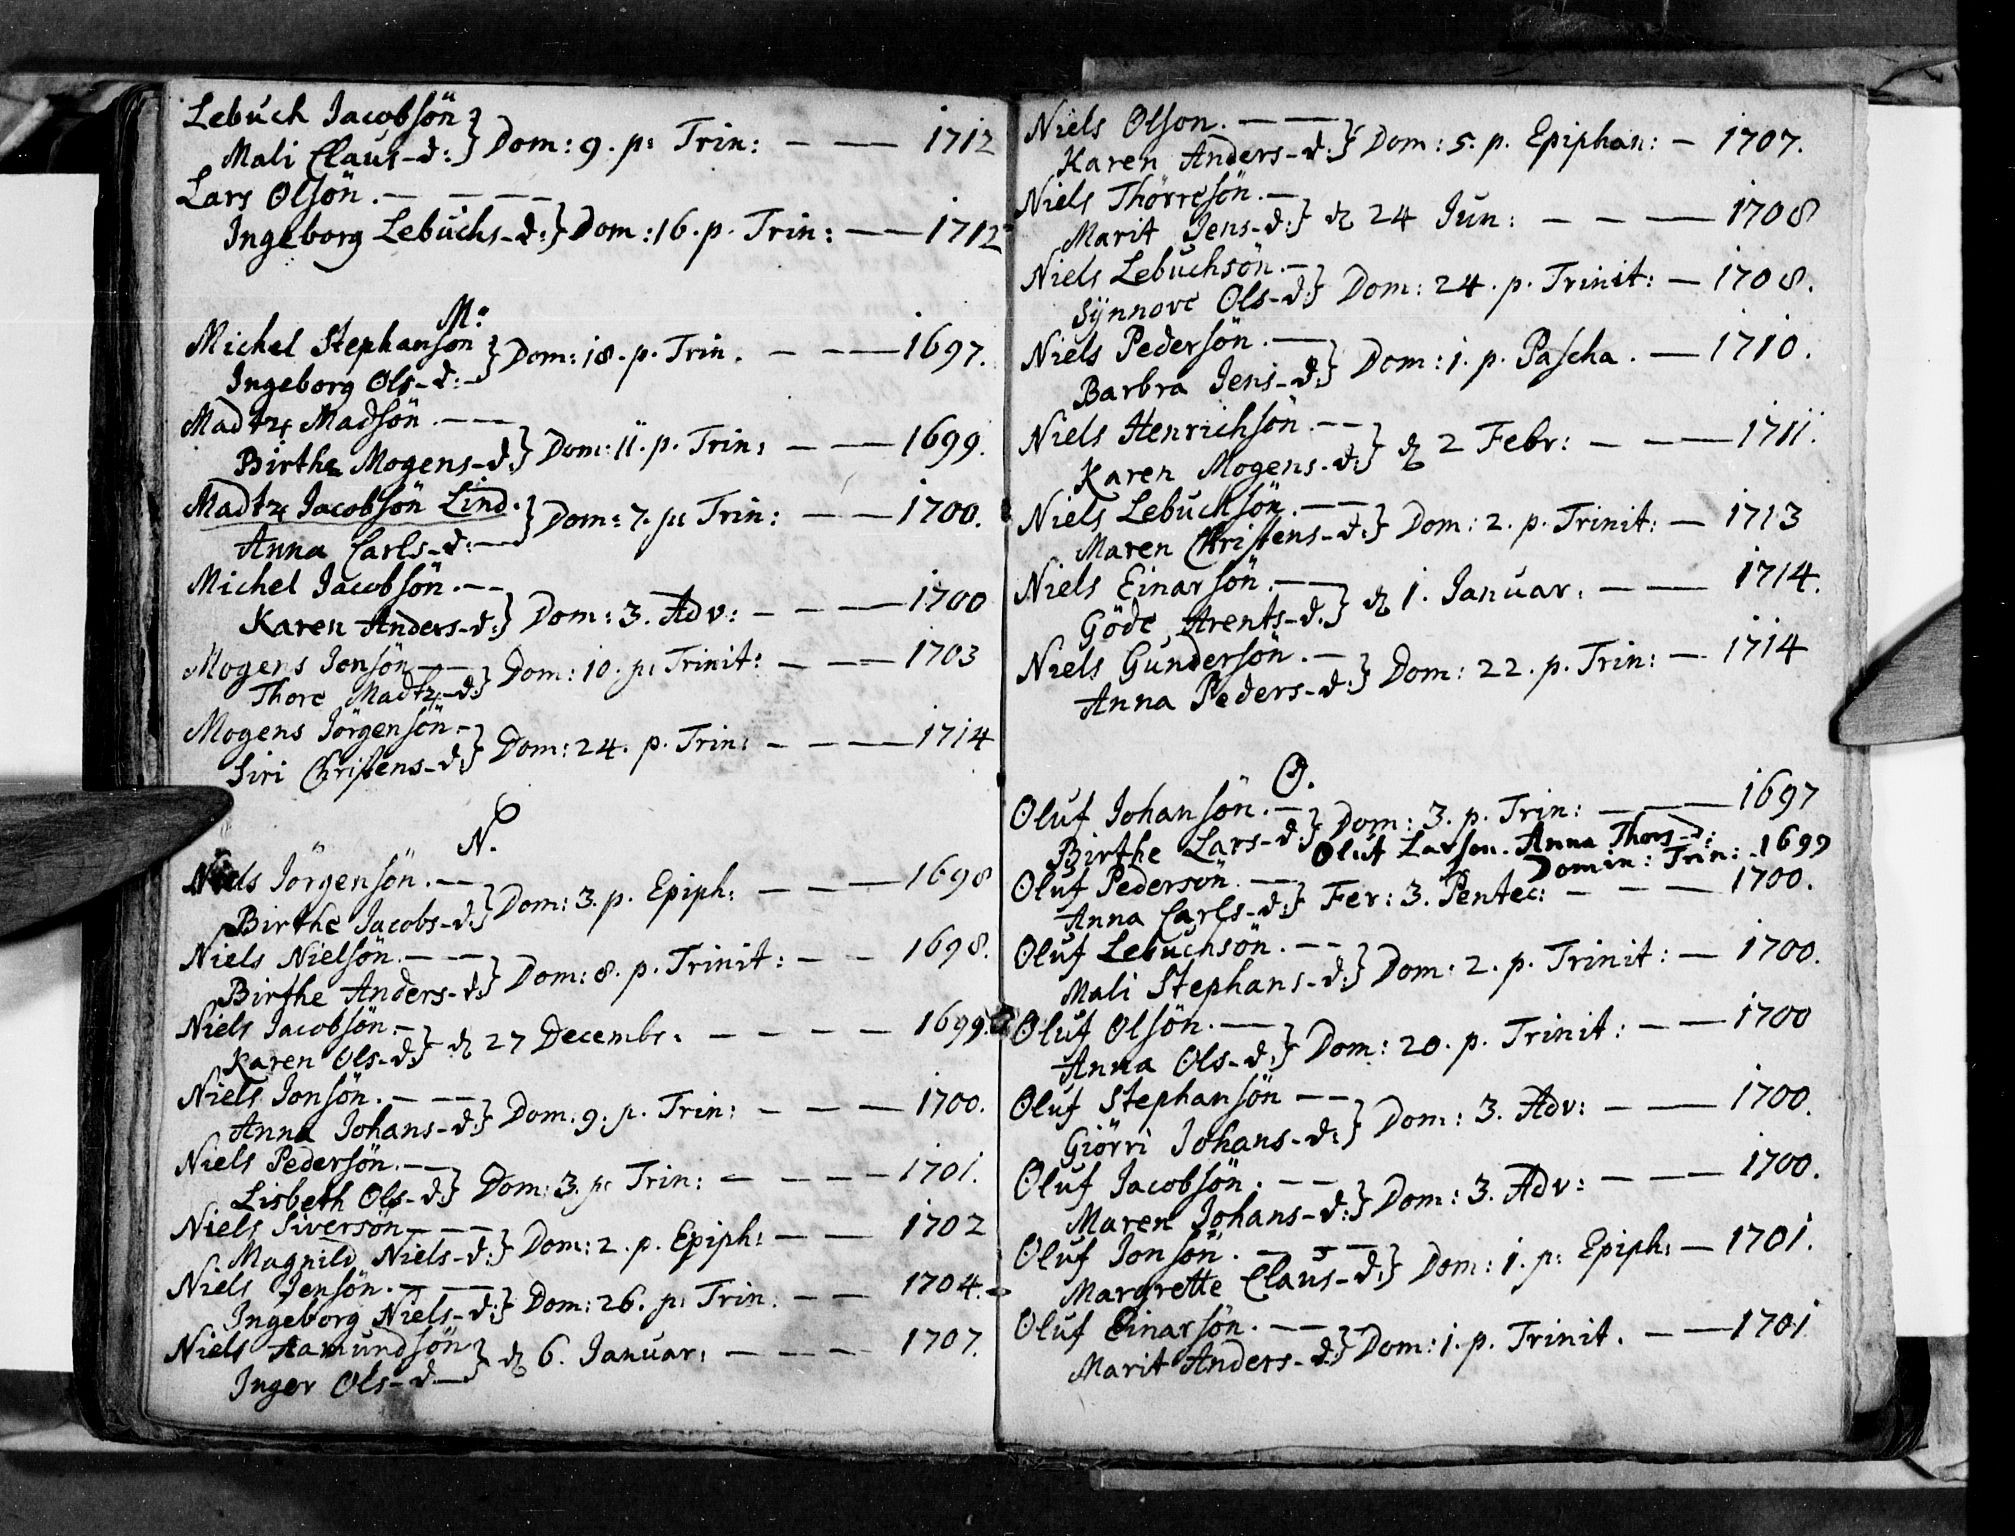 Lebuch Jacobsön
Mali Claus-d: } Dom: 9. p: Trin: — — 1712
Lars Olsön. — — —
Ingeborg Lebuchs-d: } Dom: 16. p. Trin: — — 1712
M:
Michel Stephansön
Ingeborg Ols-d: } Dom: 18. p. Trin. — — — 1697.
Madtz Madsön. — —
Birthe Mogens-d: } Dom: 11. p. Trin: — — 1699.
Madtz Jacobsön Lind.
Anna Carls-d: — } Dom: 7. p: Trin: — — — 1700.
Michel Jacobsön. — —
Karen Anders-d: } Dom: 3. Adv: — — — 1700
Mogens Jonsön — —
Thore Madtz-d: } Dom: 10. p: Trinit: — — — 1703
Mogens Jörgensön. —
Siri Christens-d: } Dom: 24. p. Trin: — — — 1714
N.
Niels Jörgensön. — —
Birthe Jacobs-d: } Dom: 3. p. Epiph: — — — 1698
Niels Nielsön. — —
Birthe Anders-d: } Dom: 8. p. Trinit: — — 1698.
Niels Jacobsön. —
Karen Ols-d: } d. 27 Decembr. — — — — 1699.
Niels Jonsön. — — —
Anna Johans-d: } Dom. 9. p. Trin: — — — 1700.
Niels Pedersön. — —
Lisbeth Ols-d: } Dom: 3. p: Trin: — — — — 1701.
Niels Siversön — — —
Magnild Niels-d: } Dom: 2. p. Epiph: — — 1702
Niels Jensön. — — —
Ingeborg Niels-d: } Dom: 26. p: Trin. — — 1704.
Niels Aamundsön
Inger Ols-d: — } d. 6. Januar: — — — — 1707.
Niels Olson. — —
Karen Anders-d: } Dom: 5. p. Epiphan: — 1707.
Niels Thörresön. —
Marit Jens-d: } d. 24 Jun: — — — 1708
Niels Lebuchsön. —
Synnove Ols-d: } Dom: 24. p. Trinit: — 1708.
Niels Pedersön. —
Barbra Jens-d: } Dom: 1. p. Pascha. — 1710.
Niels Henrichsön. — —
Karen Mogens-d: } d. 2 Febr: — — — 1711.
Niels Lebuchsön. — —
Maren Christens-d: } Dom: 2. p. Trinit: — 1713
Niels Einarsön. — —
Göde Arents-d. } d. 1. Januar. — — 1714.
Niels Gundersön. —
Anna Peders-d: } Dom: 22. p. Trin: — 1714
O.
Oluf Johansön. —
Birthe Lars-d: } Dom: 3. p. Trin: — — — 1697
Oluf Larsen. Anna Thors-d:
Domin: Trin: - 1699
Oluf Pedersön. — —
Anna Carls-d: } Fer: 3. Pentec: — — — 1700.
Oluf Lebuchsön. — —
Mali Stephans-d: } Dom: 2. p. Trinit: — 1700.
Oluf Olsön. — —
Anna Ols-d: } Dom: 20. p. Trinit: — — 1700
Oluf Stephansön — —
Giörri Johans-d: } Dom: 3. Adv: — — 1700.
Oluf Jacobsön. — —
Maren Johans-d: } Dom: 3. Adv: — — — 1700.
Oluf Jonsön. — — —
Margrette Claus-d: } Dom: 1. p: Epiph: — 1701.
Oluf Einarsön. — —
Marit Anders-d: } Dom: 1. p. Trinit. — — 1701.